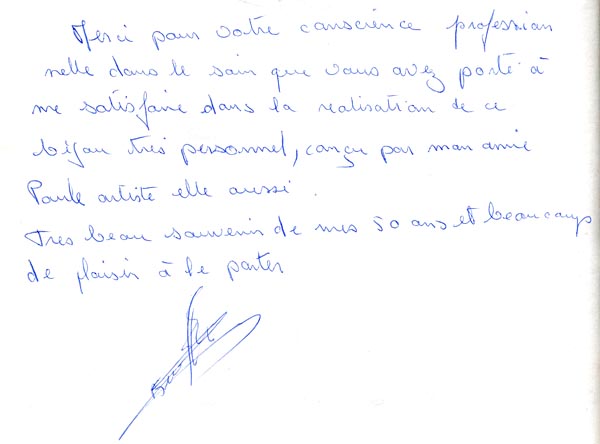 Merci pour votre conscience profession
nelle dans le soin que vous avez porté à
me satisfaire dans la realisation de ce
bijou très personnel, conçu par mon amie
Paule artiste elle aussi.
Très beau souvenir de mes 50 ans et beaucoup
de plaisir à le porter